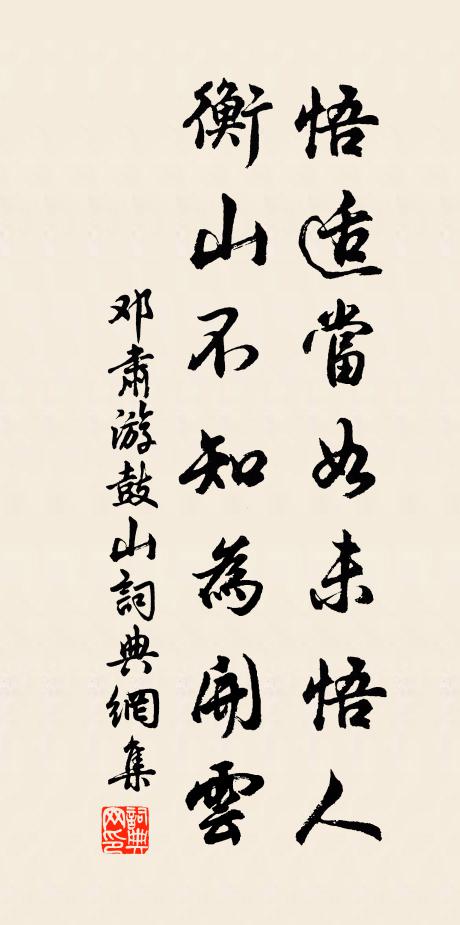 悟适當如未悟人
衡山不知為開雲
邓肃游鼓山詞典網集
詞典网印